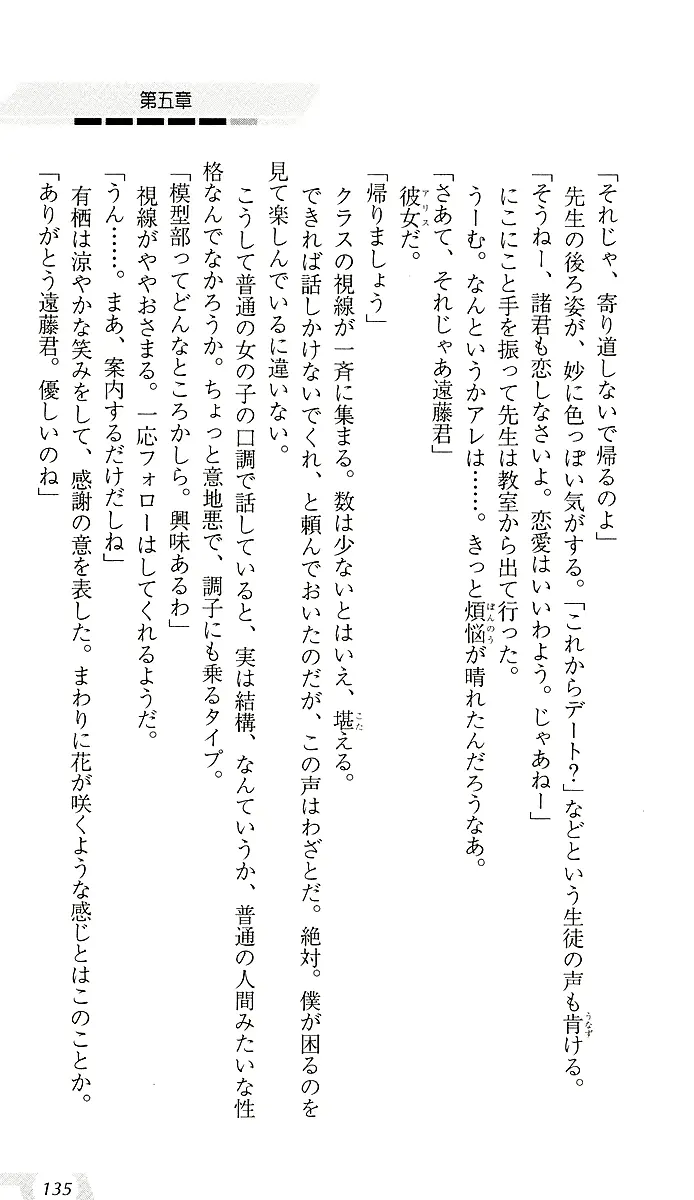 第五章
「それじゃ、寄り道しないで帰るのよ」
先生の後ろ姿が、妙に色っぽい気がする。「これからデート？」などという生徒の声も肯ける。
「そうねー、諸君も恋しなさいよ。恋愛はいいわよう。じゃあねー」
にこにこと手を振って先生は教室から出て行った。
うーむ。なんというかアレは……。きっと煩悩が晴れたんだろうなあ。
「さあて、それじゃあ遠藤君」
彼女だ。
「帰りましょう」
クラスの視線が一斉に集まる。数は少ないとはいえ、堪える。
できれば話しかけないでくれ、と頼んでおいたのだが、この声はわざとだ。絶対。僕が困るのを
見て楽しんでいるに違いない。
こうして普通の女の子の口調で話していると、実は結構、なんていうか、普通の人間みたいな性
格なんでなかろうか。ちょっと意地悪で、調子にも乗るタイプ。
「模型部ってどんなところかしら。興味あるわ」
視線がややおさまる。一応フォローはしてくれるようだ。
「うん……。まあ、案内するだけだしね」
有栖は涼やかな笑みをして、感謝の意を表した。まわりに花が咲くような感じとはこのことか。
「ありがとう遠藤君。優しいのね」
135